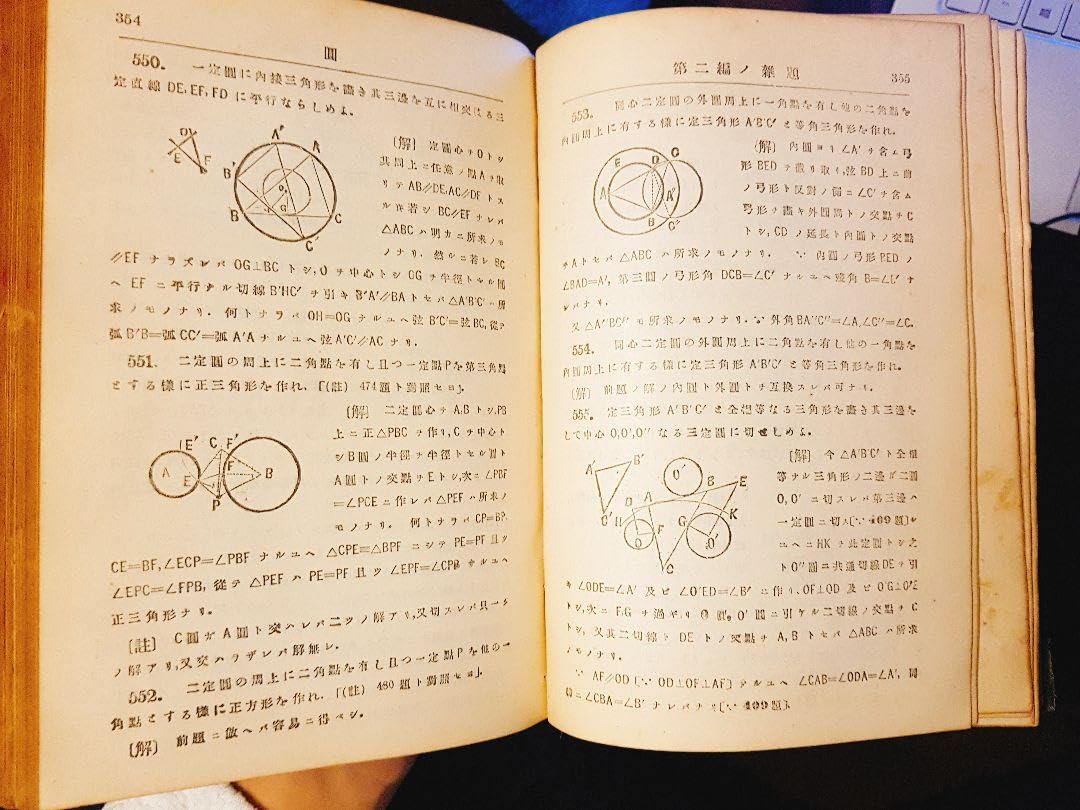 354
圓
550. 一定圓に內接三角形を畵き其三邊を互に相交はる三
定直線 DE, EF, FD に平行ならしめよ。
〔解〕 定圓心チOトシ
其周上ニ任意ノ點Aチ取
リテ AB//DE, AC//DF トス
ル時若シ BC//EF ナレバ
△ABC ハ明カニ所求ノモ
ノナリ. 然ルニ若レ BC
//EF ナラズレバ OG⊥BC トシ, O チ中心トシ OG チ半徑トセル圓
ヘ EF ニ平行ナル切線 B'HC' チ引キ B'A'//BA トセバ △A'B'C' ハ所
求ノモノナリ. 何トナラバ OH=OG ナルユヘ弦 B'C'=弦 BC, 從テ
弧 B'B=弧 CC'=弧 A'A ナルユヘ弦 A'C'//AC ナリ.
551. 二定圓の周上に二角點を有し且つ一定點Pを第三角點
とする樣に正三角形を作れ.「(註) 474題ト對照セヨ」.
〔解〕 二定圓心チ A,B トシ, PB
上ニ正△PBC チ作リ, C チ中心ト
シB圓ノ半徑チ半徑トセル圓ト
A圓トノ交點チEトシ, 次ニ ∠PBF
=∠PCE ニ作レバ △PEF ハ所求ノ
モノナリ. 何トナラバ CP=BP,
CE=BF, ∠ECP=∠PBF ナルユヘ △CPE=△BPF ニシテ PE=PF 且ツ
∠EPC=∠FPB, 從テ △PEF ハ PE=PF 且ツ ∠EPF=∠CPB ナルユヘ
正三角形ナリ.
〔註〕 C圓ガA圓ト交ハレバ二ツノ解アリ, 又切スレバ只一ツ
ノ解アリ, 又交ハラザレバ解無レ.
552. 二定圓の周上に二角點を有し且つ一定點Pを他の一
角點とする樣に正方形を作れ.「(註) 480題ト對照セヨ」.
〔解〕 前題ニ倣ヘバ容易ニ得ベシ.
第二編ノ雜題
355
553. 同心二定圓の外圓周上に一角點を有し他の二角點を
內圓周上に有する樣に定三角形 A'B'C' と等角三角形を作れ.
〔解〕 內圓ヨリ ∠A' チ含ム弓
形 BED チ截リ取リ, 弦 BD 上ニ前
ノ弓形ト反對ノ側ニ ∠C' チ含ム
弓形チ畵キ外圓周トノ交點チ C
トシ, CD ノ延長ト內圓トノ交點
チ A トセバ △ABC ハ所求ノモノナリ. ∵ 內圓ノ弓形 BED ノ
∠BAD=A', 第三圓ノ弓形角 DCB=∠C' ナルユヘ殘角 B=∠B' ナ
レバナリ.
又 △A''BC'' モ所求ノモノナリ. ∵ 外角 BA''C''=∠A, ∠C''=∠C.
554. 同心二定圓の外圓周上に二角點を有し他の一角點を
內圓周上に有する樣に定三角形 A'B'C' と等角三角形を作れ.
〔解〕 前題ノ解ノ內圓ト外圓トチ互換スレバ可ナリ.
555. 定三角形 A'B'C' と全相等なる三角形を畵き其三邊を
して中心 O, O', O'' なる三定圓に切せしめよ.
〔解〕 今 △A'B'C' ト全相
等ナル三角形ノ二邊ガ二圓
O, O' ニ切スレバ第三邊ハ
一定圓ニ切ス〔∵ 409題〕ル
ユヘニ HK チ此定圓トシ之
ト O'' 圓ニ共通切線 DE チ引
キ ∠ODE=∠A' 及ビ ∠O'ED=∠B' ニ作リ, OF⊥OD 及ビ O'G⊥O'E
トシ, 次ニ F,G チ過ギリ O 圓, O' 圓ニ引ケル二切線ノ交點チ C
トシ, 又其二切線ト DE トノ交點チ A, B トセバ △ABC ハ所求
ノモノナリ.
∵ AF//OD〔∵ OD⊥OF⊥AF〕ナルユヘ ∠CAB=∠ODA=∠A', 同
∠CBA=∠B' ナレバナリ〔∵ 409題〕.